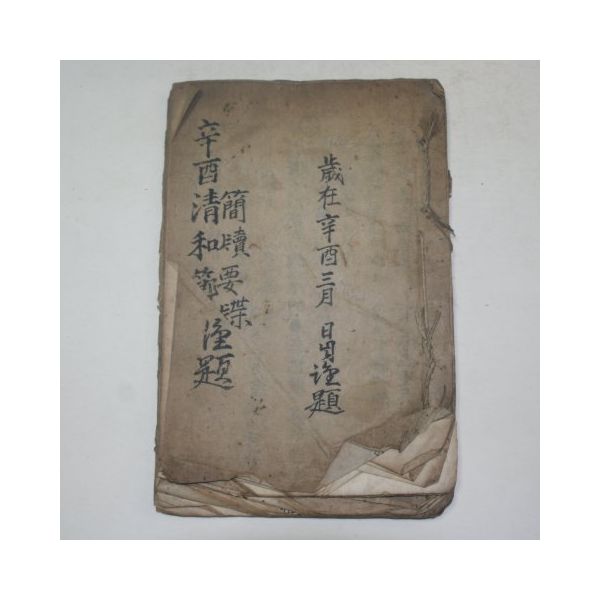 歲在辛酉三月 日 謹題
簡牘要蝶
辛酉清和 謹題